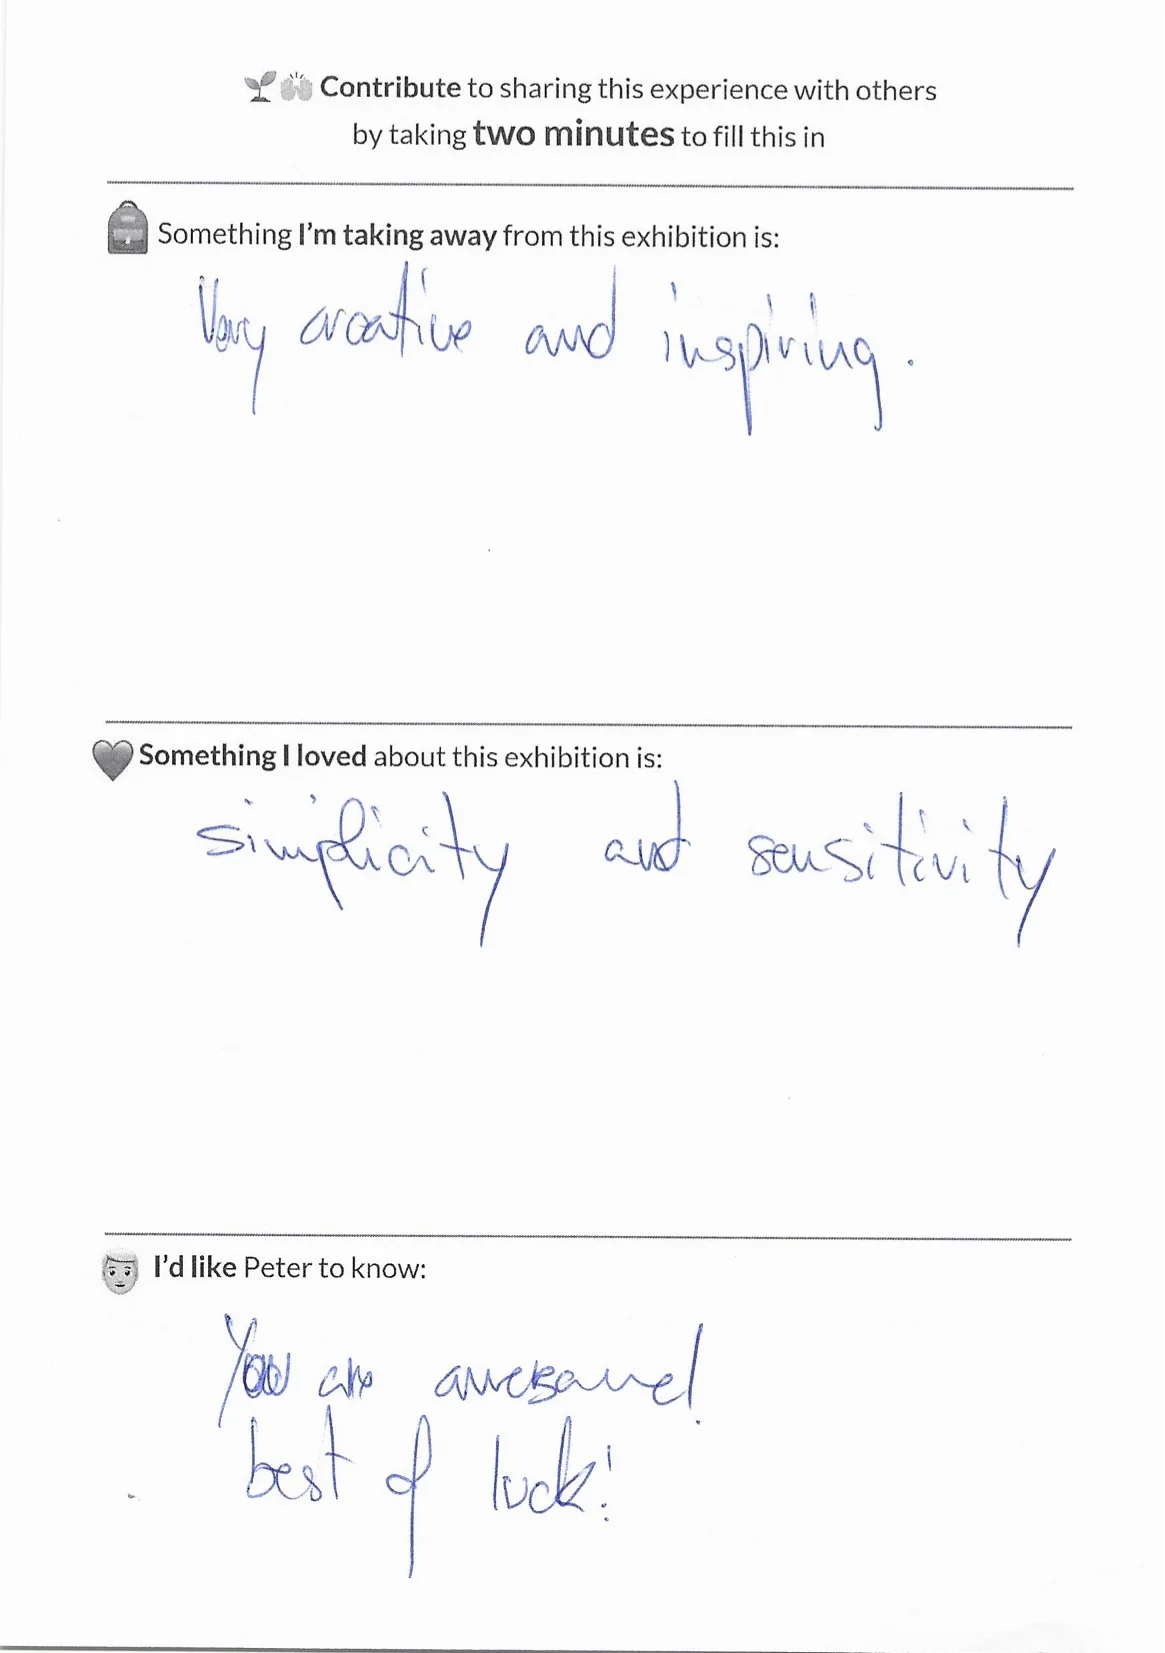 Contribute to sharing this experience with others
by taking two minutes to fill this in
Something I'm taking away from this exhibition is:
Very creative and inspiring.
Something I loved about this exhibition is:
simplicity and sensitivity
I'd like Peter to know:
You are awesome!
best of luck!